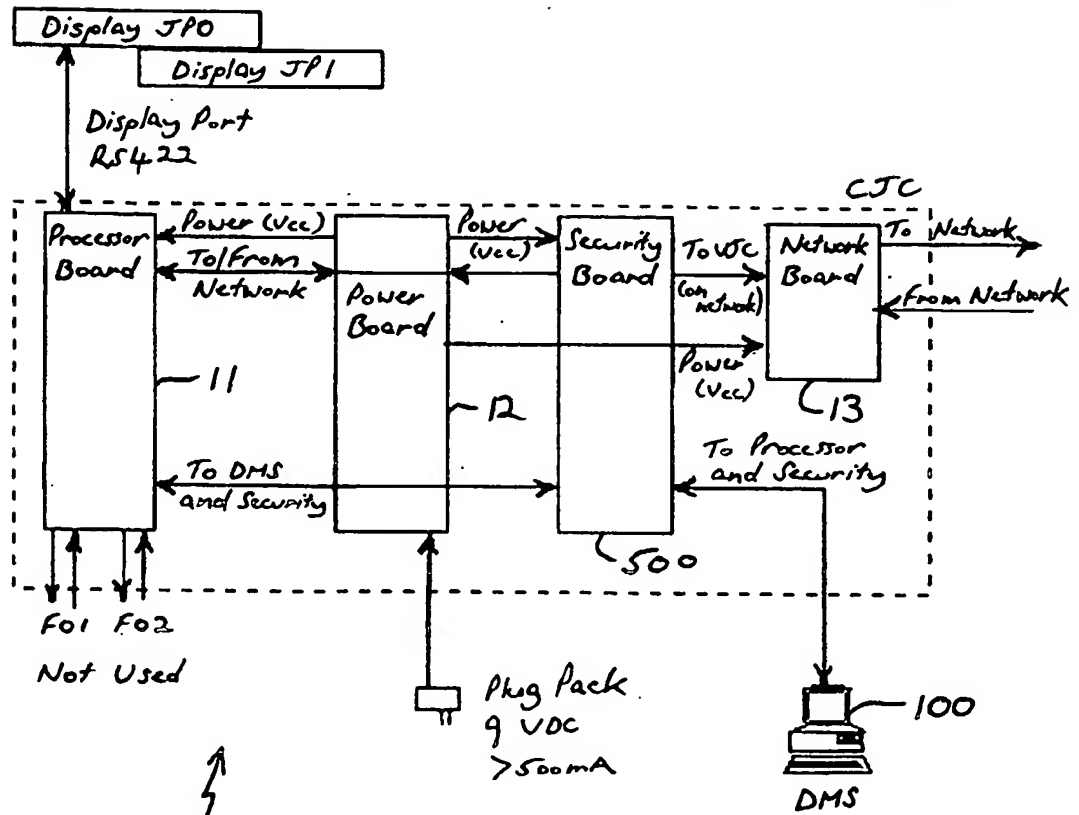 Display JP0
Display JP1
Display Port
RS422
CJC
Processor
Board
Power (Vcc)
To/From
Network
Power
Board
Power
(Vcc)
Security
Board
To VJC
(on
network)
Power
(Vcc)
Network
Board
To Network
From Network
11
12
13
To DMS
and Security
To Processor
and Security
500
F01 F02
Not Used
Plug Pack
9 VDC
>500mA
100
DMS